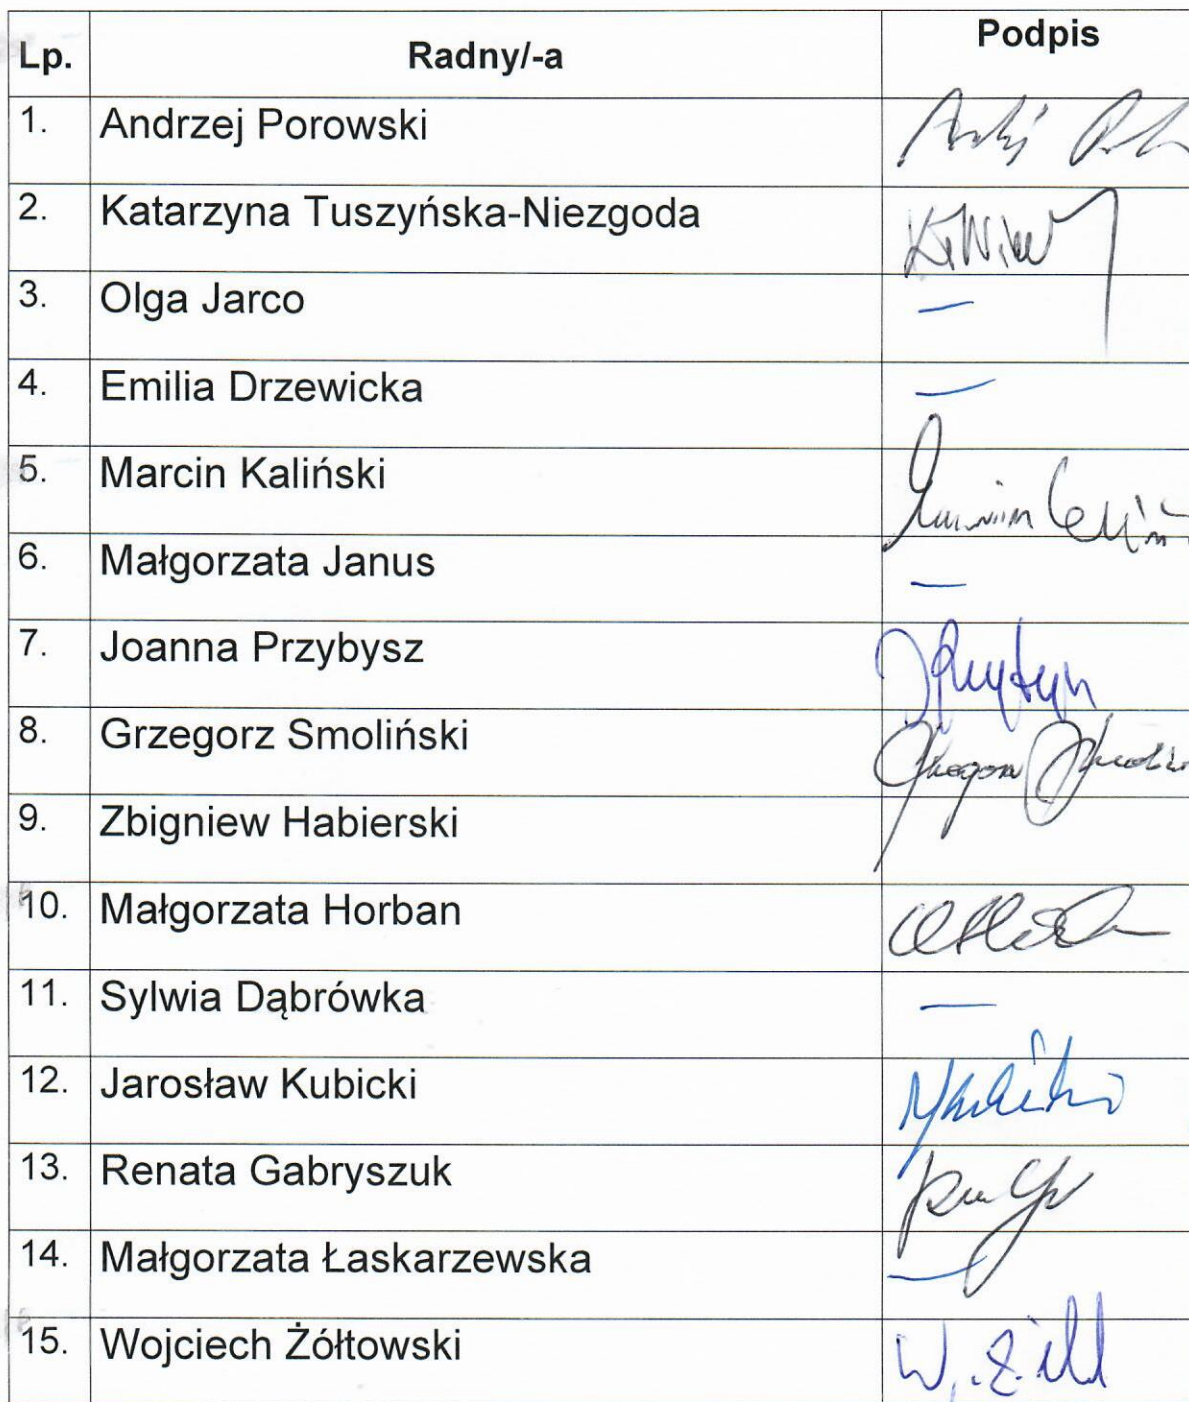 Lp. Radny/-a Podpis
1. Andrzej Porowski
2. Katarzyna Tuszyńska-Niezgoda
3. Olga Jarco —
4. Emilia Drzewicka —
5. Marcin Kaliński
6. Małgorzata Janus —
7. Joanna Przybysz
8. Grzegorz Smoliński
9. Zbigniew Habierski
10. Małgorzata Horban
11. Sylwia Dąbrówka —
12. Jarosław Kubicki
13. Renata Gabryszuk
14. Małgorzata Łaskarzewska —
15. Wojciech Żółtowski